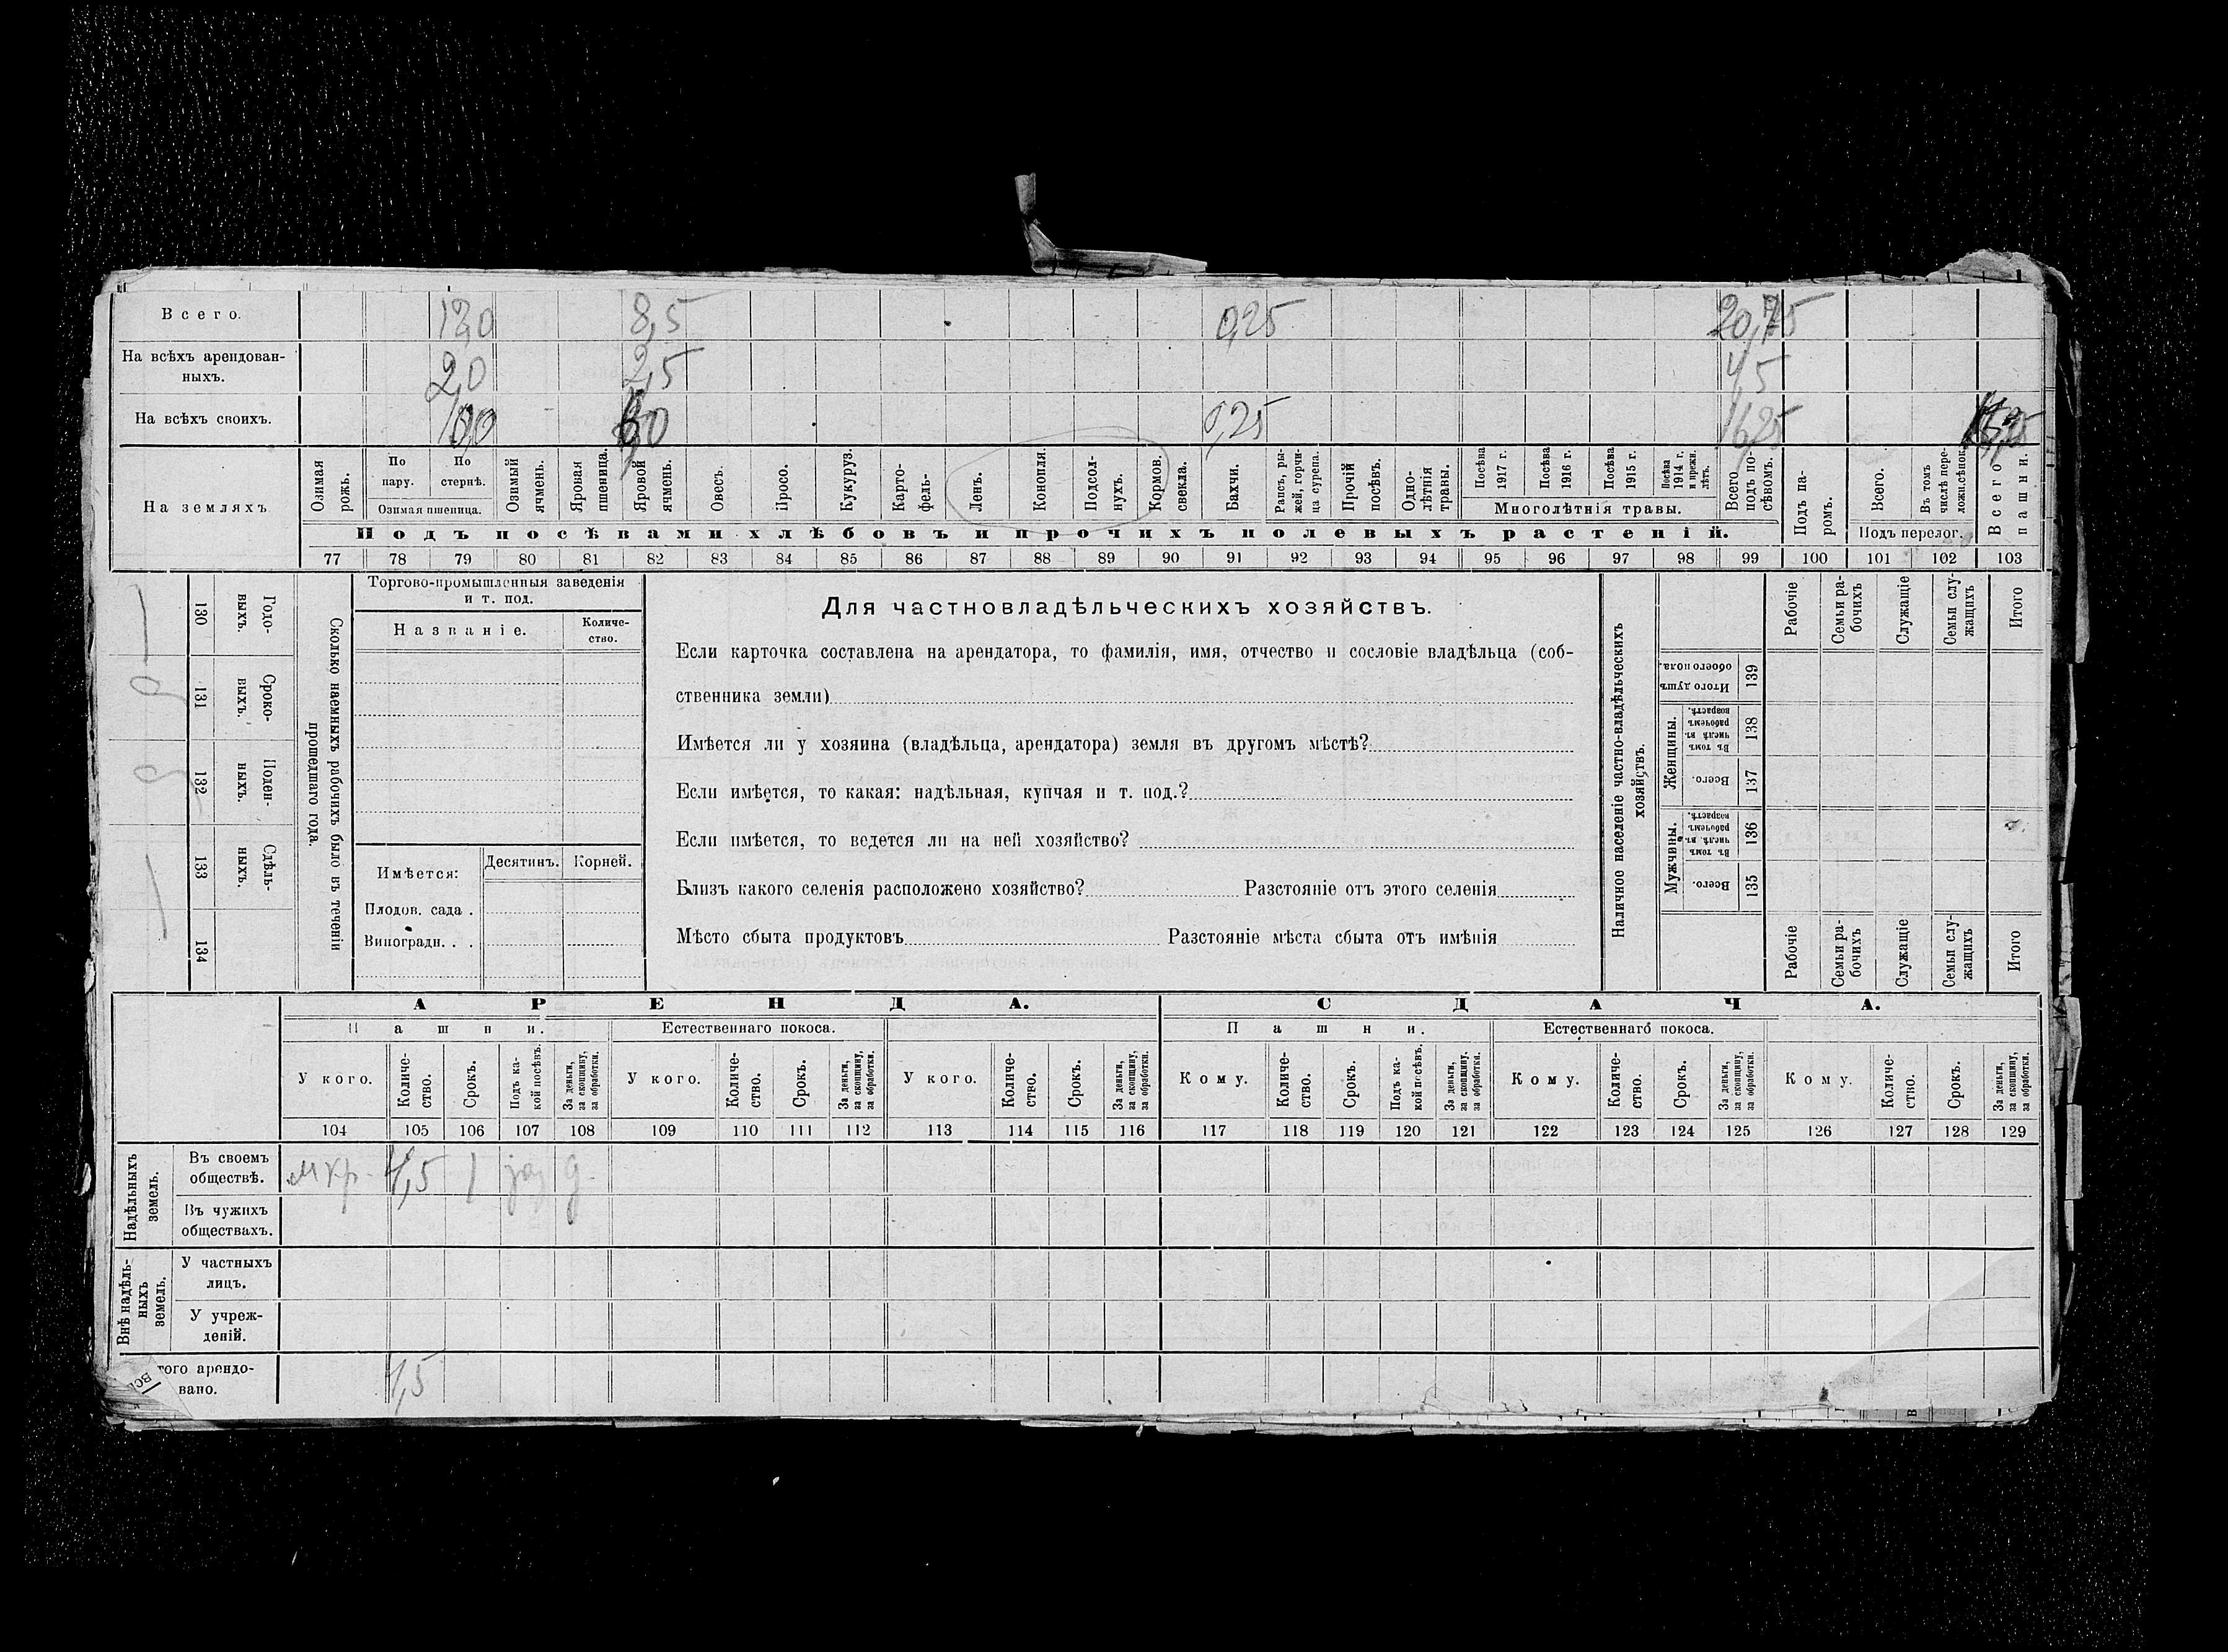 Всего. 12,0 8,5 0,25 20,75
На всѣхъ арендован-
ныхъ. 2,0 2,5 4,5
На всѣхъ своихъ. 10,0 6,0 0,25 16,25
На земляхъ
Озимая
рожь.
По
пару.
По
стернѣ.
Озимая пшеница.
Озимый
ячмень.
Яровая
пшеница.
Яровой
ячмень.
Овесъ.
Просо.
Кукуруз.
Карто-
фель.
Ленъ.
Конопля.
Подсол-
нухъ.
Кормов.
свекла.
Бахчи.
Рапсъ, ры-
жей, горчи-
ца сурепа.
Прочій
посѣвъ.
Одно-
лѣтнія
травы.
Посѣва
1917 г.
Посѣва
1916 г.
Посѣва
1915 г.
Посѣва
1914 г.
и прежн.
лѣтъ.
Многолѣтнія травы.
Всего
подъ по-
сѣвомъ.
Подъ па-
ромъ.
Всего.
Въ томъ
числѣ пере-
ложн. сѣнок.
Подъ перелог.
Всего
пашни.
Подъ посѣвами хлѣбовъ и прочихъ полевыхъ растеній.
77 78 79 80 81 82 83 84 85 86 87 88 89 90 91 92 93 94 95 96 97 98 99 100 101 102 103
130 Годо-
выхъ.
131 Сроко-
выхъ.
132 Поден-
ныхъ.
133 Сдѣль-
ныхъ.
134
Сколько наемныхъ рабочихъ было въ теченіи
прошедшаго года.
Торгово-промышленныя заведенія
и т. под.
Названіе.
Количе-
ство.
Имѣется:
Десятинъ. Корней.
Плодов. сада .
Виноградн. . .
Для частновладѣльческихъ хозяйствъ.
Если карточка составлена на арендатора, то фамилія, имя, отчество и сословіе владѣльца (соб-
ственника земли)
Имѣется ли у хозяина (владѣльца, арендатора) земля въ другомъ мѣстѣ?
Если имѣется, то какая: надѣльная, купчая и т. под.?
Если имѣется, то ведется ли на ней хозяйство?
Близъ какого селенія расположено хозяйство? Разстояніе отъ этого селенія
Мѣсто сбыта продуктовъ Разстояніе мѣста сбыта отъ имѣнія
Наличное населеніе частно-владѣльческихъ
хозяйствъ.
Рабочіе
Семьи ра-
бочихъ
Служащіе
Семьи слу-
жащихъ
Итого
Итого душъ
обоего пола.
139
Женщины.
Въ томъ
числѣ въ
рабочемъ
возрастѣ.
138
Всего.
137
Мужчины.
Въ томъ
числѣ въ
рабочемъ
возрастѣ.
136
Всего.
135
Рабочіе
Семьи ра-
бочихъ
Служащіе
Семьи слу-
жащихъ
Итого
АРЕНДА. СДАЧА.
Пашни. Естественнаго покоса. Пашни. Естественнаго покоса.
У кого.
Количе-
ство.
Срокъ.
Подъ ка-
кой посѣвъ.
За деньги,
за скопщину,
за обработки.
У кого.
Количе-
ство.
Срокъ.
За деньги,
за скопщину,
за обработки.
У кого.
Количе-
ство.
Срокъ.
За деньги,
за скопщину,
за обработки.
Кому.
Количе-
ство.
Срокъ.
Подъ ка-
кой посѣвъ.
За деньги,
за скопщину,
за обработки.
Кому.
Количе-
ство.
Срокъ.
За деньги,
за скопщину,
за обработки.
Кому.
Количе-
ство.
Срокъ.
За деньги,
за скопщину,
за обработки.
104 105 106 107 108 109 110 111 112 113 114 115 116 117 118 119 120 121 122 123 124 125 126 127 128 129
Надѣльныхъ
земель.
Въ своемъ
обществѣ. 4,5 1
Въ чужихъ
обществахъ.
Внѣ надѣль-
ныхъ
земель.
У частныхъ
лицъ.
У учреж-
деній.
того арендо-
вано. 4,5